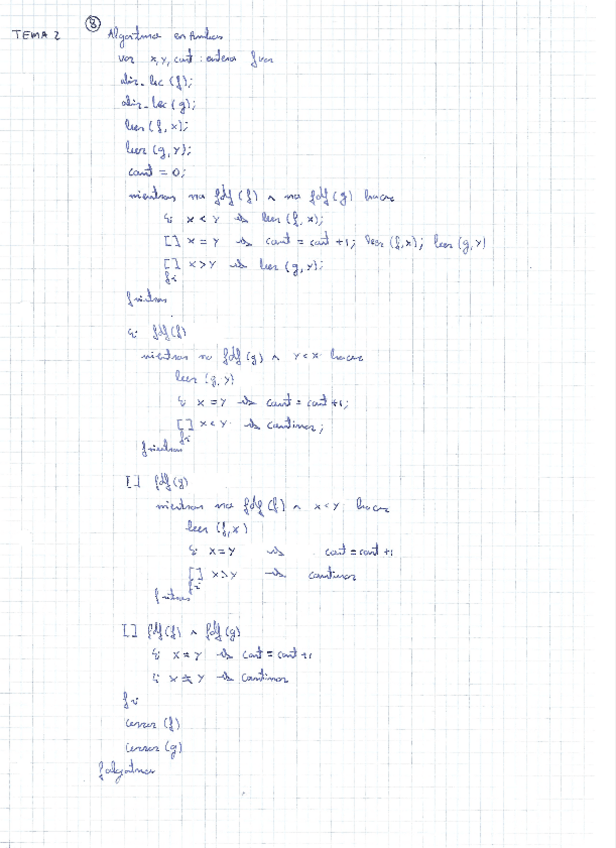 TEMA 2 ⑧ Algoritmo enAmbos
var x, y, cant : enteros fvar
abrir_lec (f);
abrir_lec (g);
leer (f, x);
leer (g, y);
cant = 0;
mientras no fdf (f) ∧ no fdf (g) hacer
si x < y → leer (f, x);
[] x = y → cant = cant + 1; leer (f, x); leer (g, y)
[] x > y → leer (g, y);
fsi
fmientras
si fdf (f)
mientras no fdf (g) ∧ y < x hacer
leer (g, y)
si x = y → cant = cant + 1;
[] x < y → continuar;
fsi
fmientras
[] fdf (g)
mientras no fdf (f) ∧ x < y hacer
leer (f, x)
si x = y → cant = cant + 1
[] x > y → continuar
fsi
fmientras
[] fdf (f) ∧ fdf (g)
si x = y → cant = cant + 1
si x ≠ y → continuar
fsi
cerrar (f)
cerrar (g)
falgoritmo